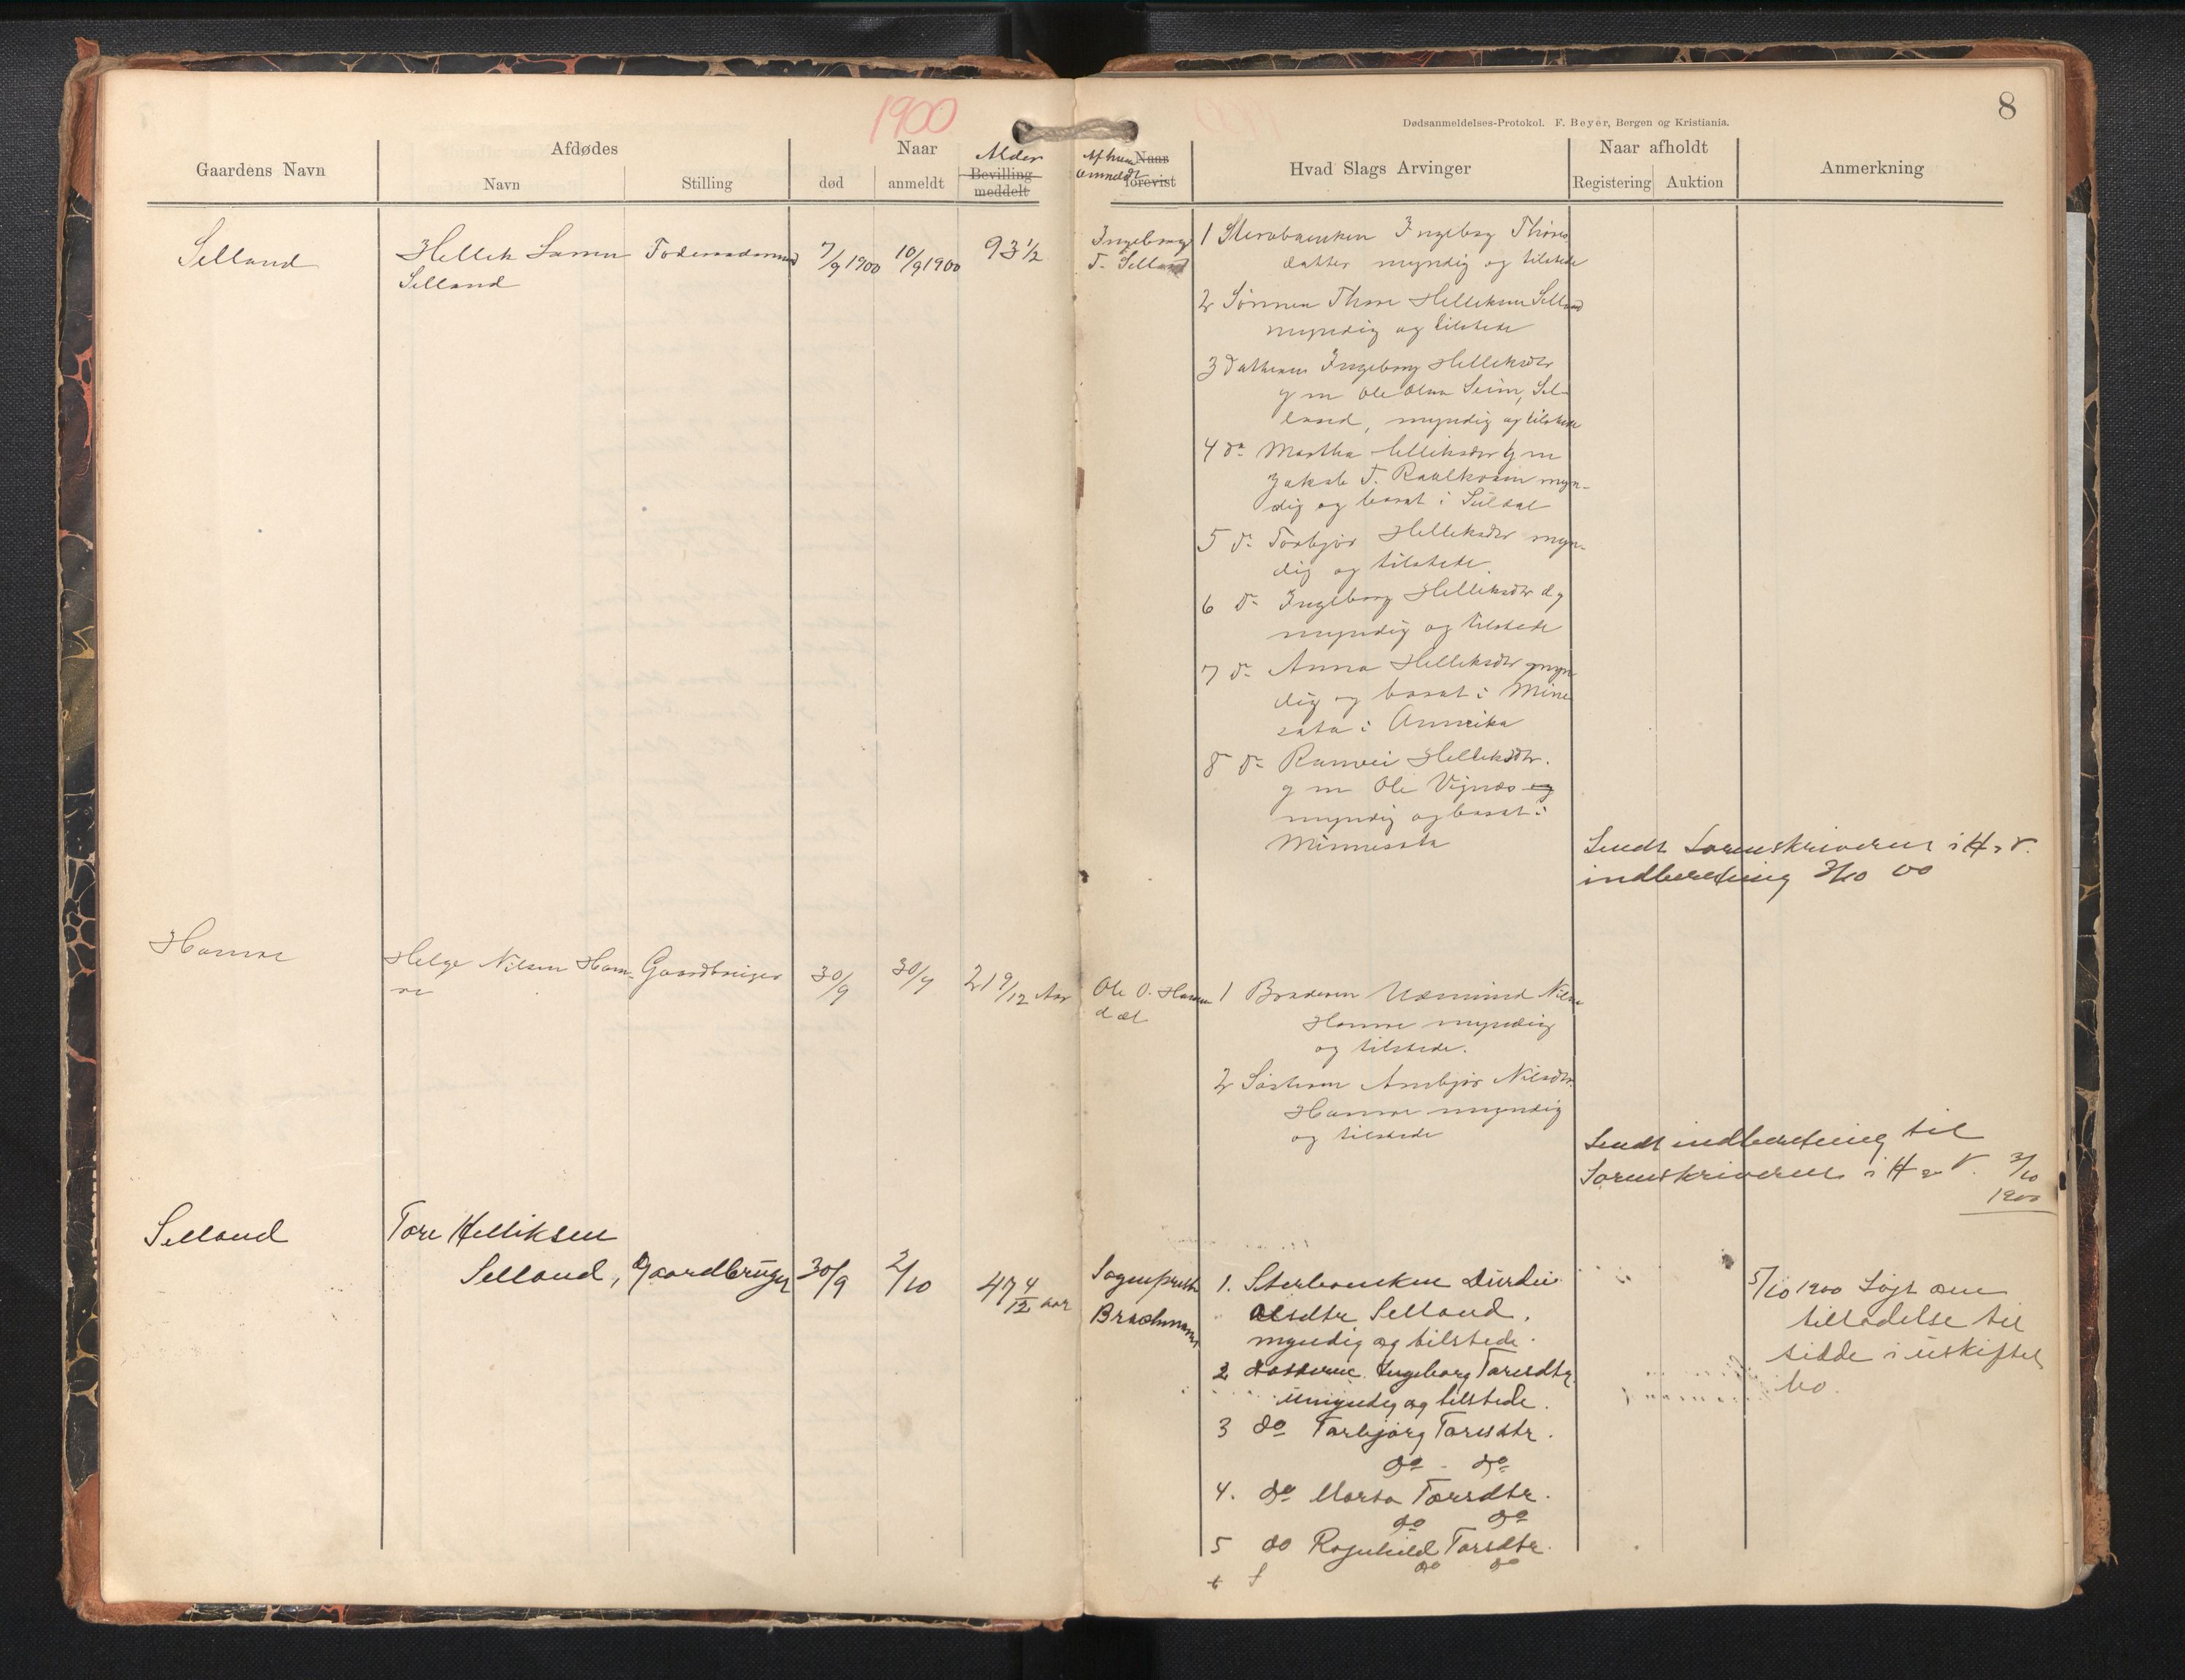 1900
Gaardens Navn
Afdødes
Navn
Stilling
Naar
død
anmeldt
Alder
Bevilling
meddelt
Selland
Hellik Larsen
Selland
7/9 1900
10/9 1900
93 1/2
Hamre
Helge Nilsen Ham-
re
Gaardbruger
30/9
30/9
21 9/12 Aar
Selland
Tore Helliksen
Selland, Gaardbruger
30/9
2/10
47 4/12 aar
8
Dødsanmeldelses-Protokol. F. Beyer, Bergen og Kristiania.
Af hvem
anmeldt
Naar
forevist
Hvad Slags Arvinger
Naar afholdt
Registering
Auktion
Anmerkning
Ingeborg
T. Selland
1 Ingeborg Thors
datter myndig og tilstede
2 Sønnen Thore Helliksen Selland
myndig og tilstede
3 Datteren Ingeborg Helliksdtr
g m Ole Olsen Seim, Sel-
land, myndig og tilstede
4 do Martha Helliksdtr g m
Jakob T. myn-
dig og bosat i Suldal
5 do Torbjør Helliksdtr myn-
dig og tilstede.
6 do Ingeborg Helliksdtr d y
myndig og tilstede
7 do Anna Helliksdtr myn
dig og bosat i Mine
sota i Amerika
8 do Ranvei Helliksdtr.
g m Ole Vignæs og
myndig og bosat i
Minnesota
Sendt Sorenskriveren i H. & V.
indberetning 3/10 00
Ole O. Hamre
d æl
1 Broderen Aamund Nilsen
Hamre myndig
og tilstede.
2 Søsteren Ambjør Nilsdtr.
Hamre myndig
og tilstede
Sendt indberetning til
Sorenskriveren i H & V. 3/10
1900
Sognepresten
Brochmann
1. Sterboenken Durdei
Olsdtr Selland,
myndig og tilstede.
2 datteren Ingeborg Toresdtr.
umyndig og tilstede.
3 do Torbjørg Toresdtr.
do - do
4. do Marta Toresdtr.
do do
5 do Ragnhild Toresdtr.
do do
5/10 1900 Søgt om
tilladelse til
sidde i uskiftet
bo.